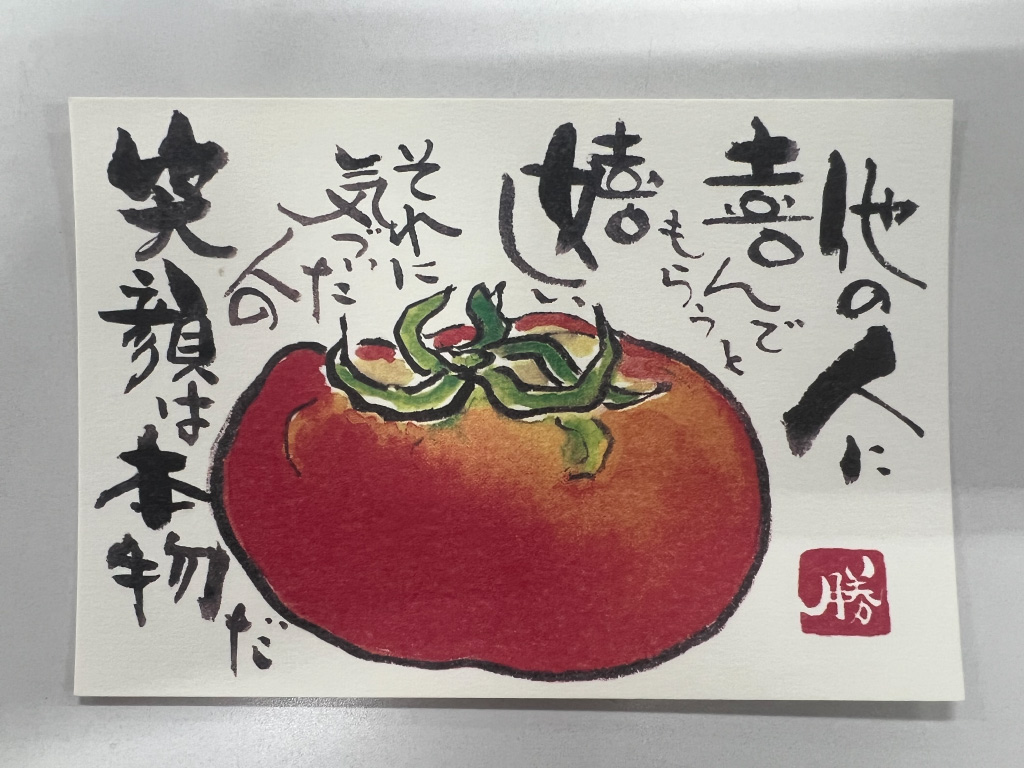 他の人に
喜んで
もらうと
嬉しい
それに
気づいだ
人の
笑顔は本物だ
勝